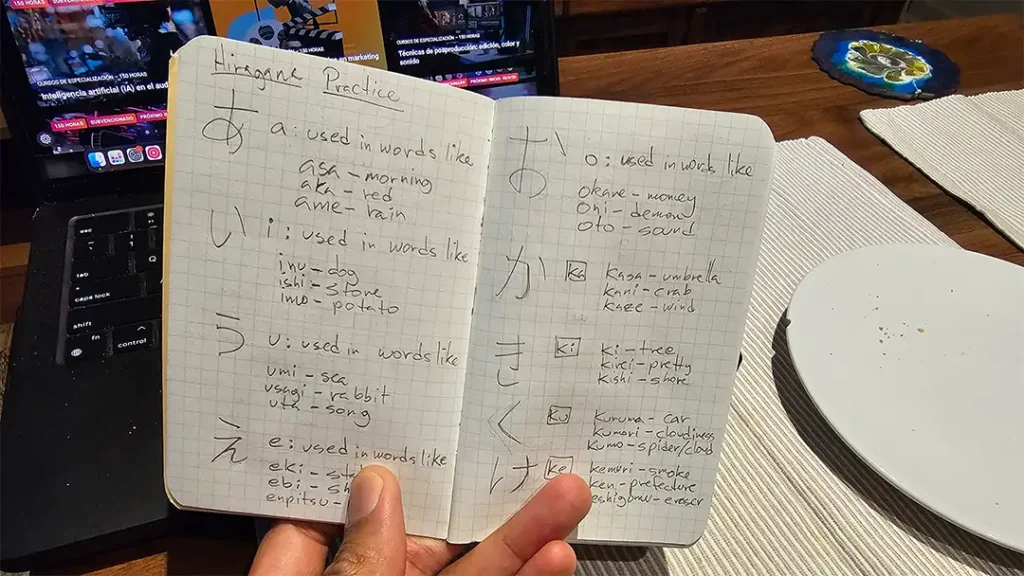 150 HORAS
CURSOS DE ESPECIALIZACIÓN - 150 HORAS
Inteligencia artificial (IA) en el
150 HORAS
SUBVENCIONADO
PRÓXIMO
en marketing
CURSO DE ESPECIALIZACIÓN - 150 HORAS
Técnicas de posproducción: edición, color y
sonido
esc
tab
Q
caps lock
A
shift
Z
fn
control
Hiragana Practice
あ a: used in words like
asa - morning
aka - red
ame - rain
い i: used in words like
inu - dog
ishi - stone
imo - potato
う u: used in words like
umi - sea
usagi - rabbit
uta - song
え e: used in words like
eki -
ebi -
enpitsu -
お o: used in words like
okane - money
oni - demon
oto - sound
か ka kasa - umbrella
kani - crab
kaze - wind
き ki ki - tree
kirei - pretty
kishi - shore
く ku kuruma - car
kumori - cloudiness
kumo - spider/cloud
け ke kemuri - smoke
ken - prefecture
eshigomu - eraser